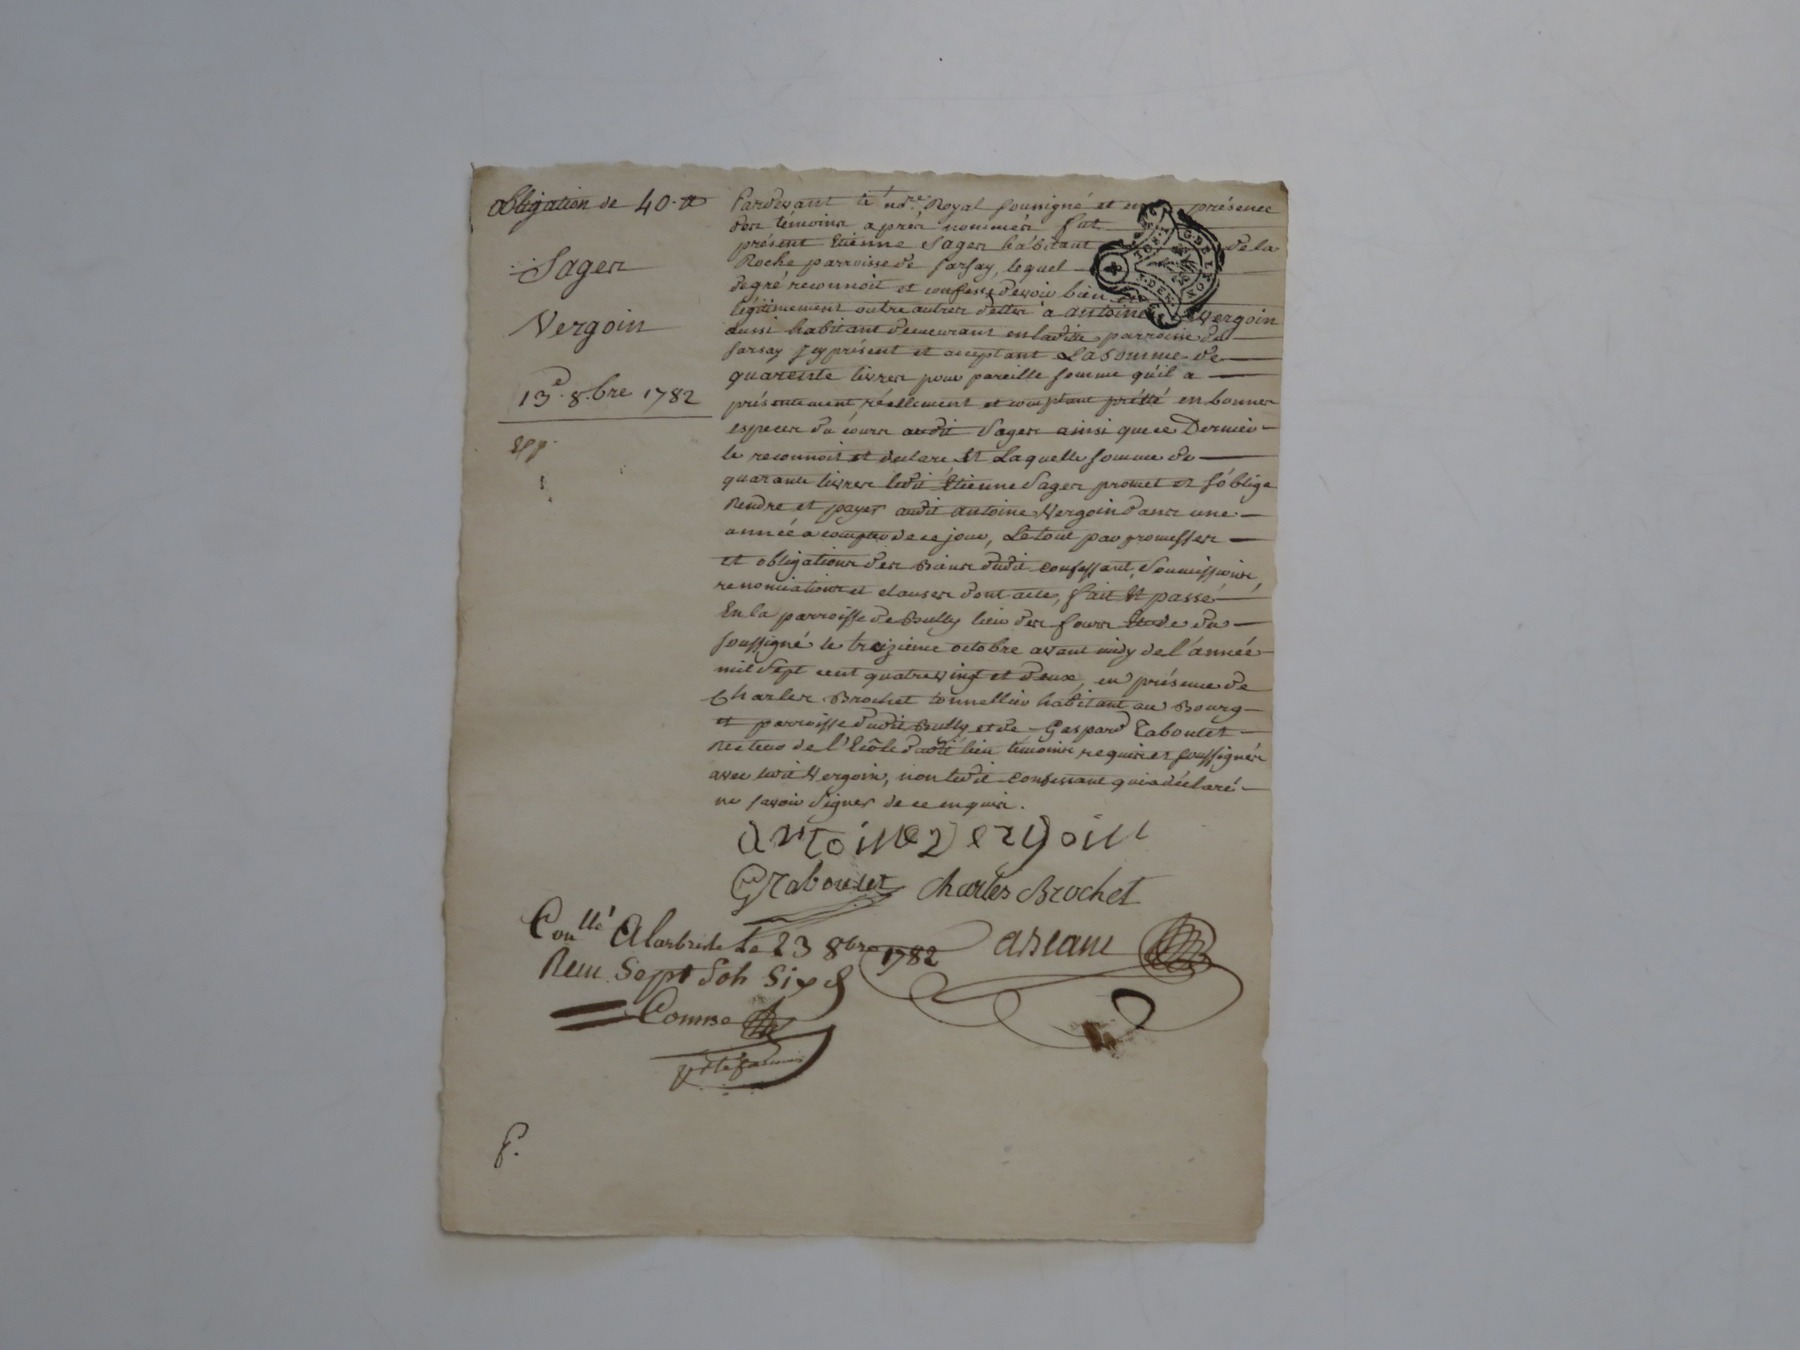 obligation de 40 ₶
Sager
Vergoin
13e 8.bre 1782
Pardevant le nore Royal soussigné et en présence
des témoins après nommés fut
présent Etienne Sager habitant de la
Roche parroisse de Sarsay, lequel
de gré reconnoit et confesse devoir bien et
légitimement outre autres dettes à antoine Vergoin
aussi habitant demeurant en ladite parroisse de
Sarsay jcy présent et acceptant La somme de
quarente livres pour pareille somme qu'il a
présentement réellement et comptant prêtté en bonnes
especes du cours audit Sager ainsi que ce Dernier
le reconnoit et declare Et Laquelle somme de
quarante livres ledit Etienne Sager promet et s'oblige
Rendre et payer audit antoine Vergoin dans une
année a compter de ce jour, Le tout par promesses
et obligations des Biens dudit confessant, Soumissions,
renonciations et clauses dont acte, fait Et passé
En la parroisse de Bully lieu des fours Etude du
soussigné le treizieme octobre avant midy de l'année
mil sept cent quatre vingt et deux, en présence de
Charles Brochet tonnellier habitant au Bourg
et parroisse dudit Bully et de Gaspard Taboulet
Recteur de l'Ecôle dudit lieu témoins requis et soussignés
avec ledit Vergoin, non ledit confessant qui a déclaré
ne savoir signer de ce enquis.
antoine Vergoin
G Taboulet Charles Brochet
Conllé A Larbresle Le 23 8bre 1782
Reçu Sept Sols Six d